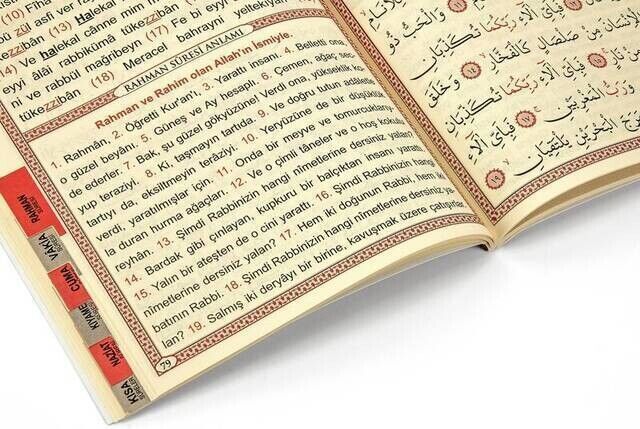 zül asfi ver ray
bân (13) Halekal
(14) Ve halekal cânne min
eyyi âlâi rabbikümâ tükezzi
ni ve rabbül mağribeyn (17) Fe bi eyyi
tükezzibân (18) Meracel bahrayni yeltekıyan
RAHMAN SÛRESİ ANLAMI
Rahman ve Rahim olan Allah'ın İsmiyle.
1. Rahmân, 2. Öğretti Kur'an'ı. 3. Yarattı insanı. 4. Belletti ona,
o güzel beyânı. 5. Güneş ve Ay hesaplı. 6. Çemen, ağaç sec-
de ederler. 7. Bak, şu güzel gökyüzüne! Verdi ona, yükseklik ko-
yup teraziyi. 8. Ki, taşmayın tartıda. 9. Ve doğru tutun adâletle
tartıy da, eksiltmeyin terâziyi. 10. Yeryüzüne de bir düşüklük
verdi, yaratılmışlar için. 11. Onda bir meyve ve tomurcukları-
n duran hurma ağaçları. 12. Ve o çimli tâneler ve o hoş kokulu
reyhân. 13. Şimdi Rabbinizin hangi nîmetlerine dersiniz yalan?
14. Bardak gibi çınlayan, kupkuru bir balçıktan insanı yarattı.
15. Yalın bir ateşten de o cini yarattı. 16. Şimdi Rabbinizin hangi
nîmetlerine dersiniz yalan? 17. Hem iki doğunun Rabbi, hem iki
batının Rabbi. 18. Şimdi Rabbinizin hangi nîmetlerine dersiniz ya-
lan? 19. Salmış iki deryâyı bir birine, kavuşmak üzere çatışırlar.
79
RAHMAN SÛRESİ
VAKIA
CUMA
KIYAME
NAZİAT
KISA SÛRELER
وَالْحَبُّ ذُو
رَبِّكُمَا تُكَذِّبَانِ
مِنْ صَلْصَالٍ كَالْفَخَّارِ
وَخَلَقَ
فَبِأَيِّ آلَاءِ رَبِّكُمَا تُكَذِّبَانِ
وَرَبُّ الْمَغْرِبَيْنِ
فَبِأَيِّ آلَاءِ
الْبَحْرَيْنِ يَلْتَقِيَانِ